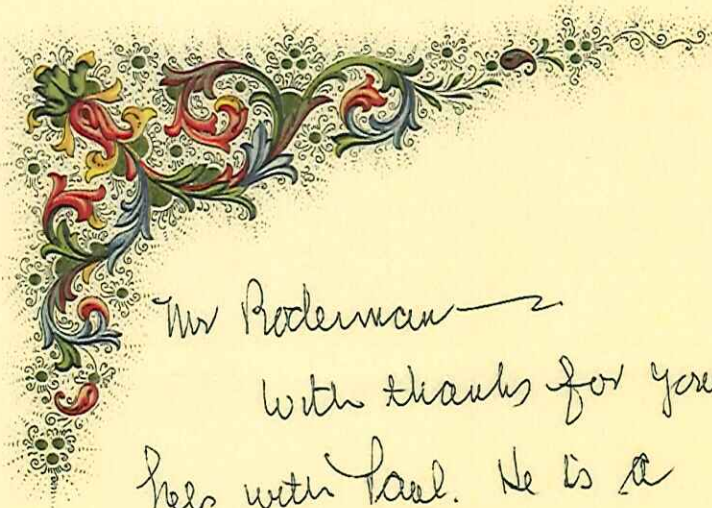 Mr Roderman —
With thanks for your
help with Paul. He is a